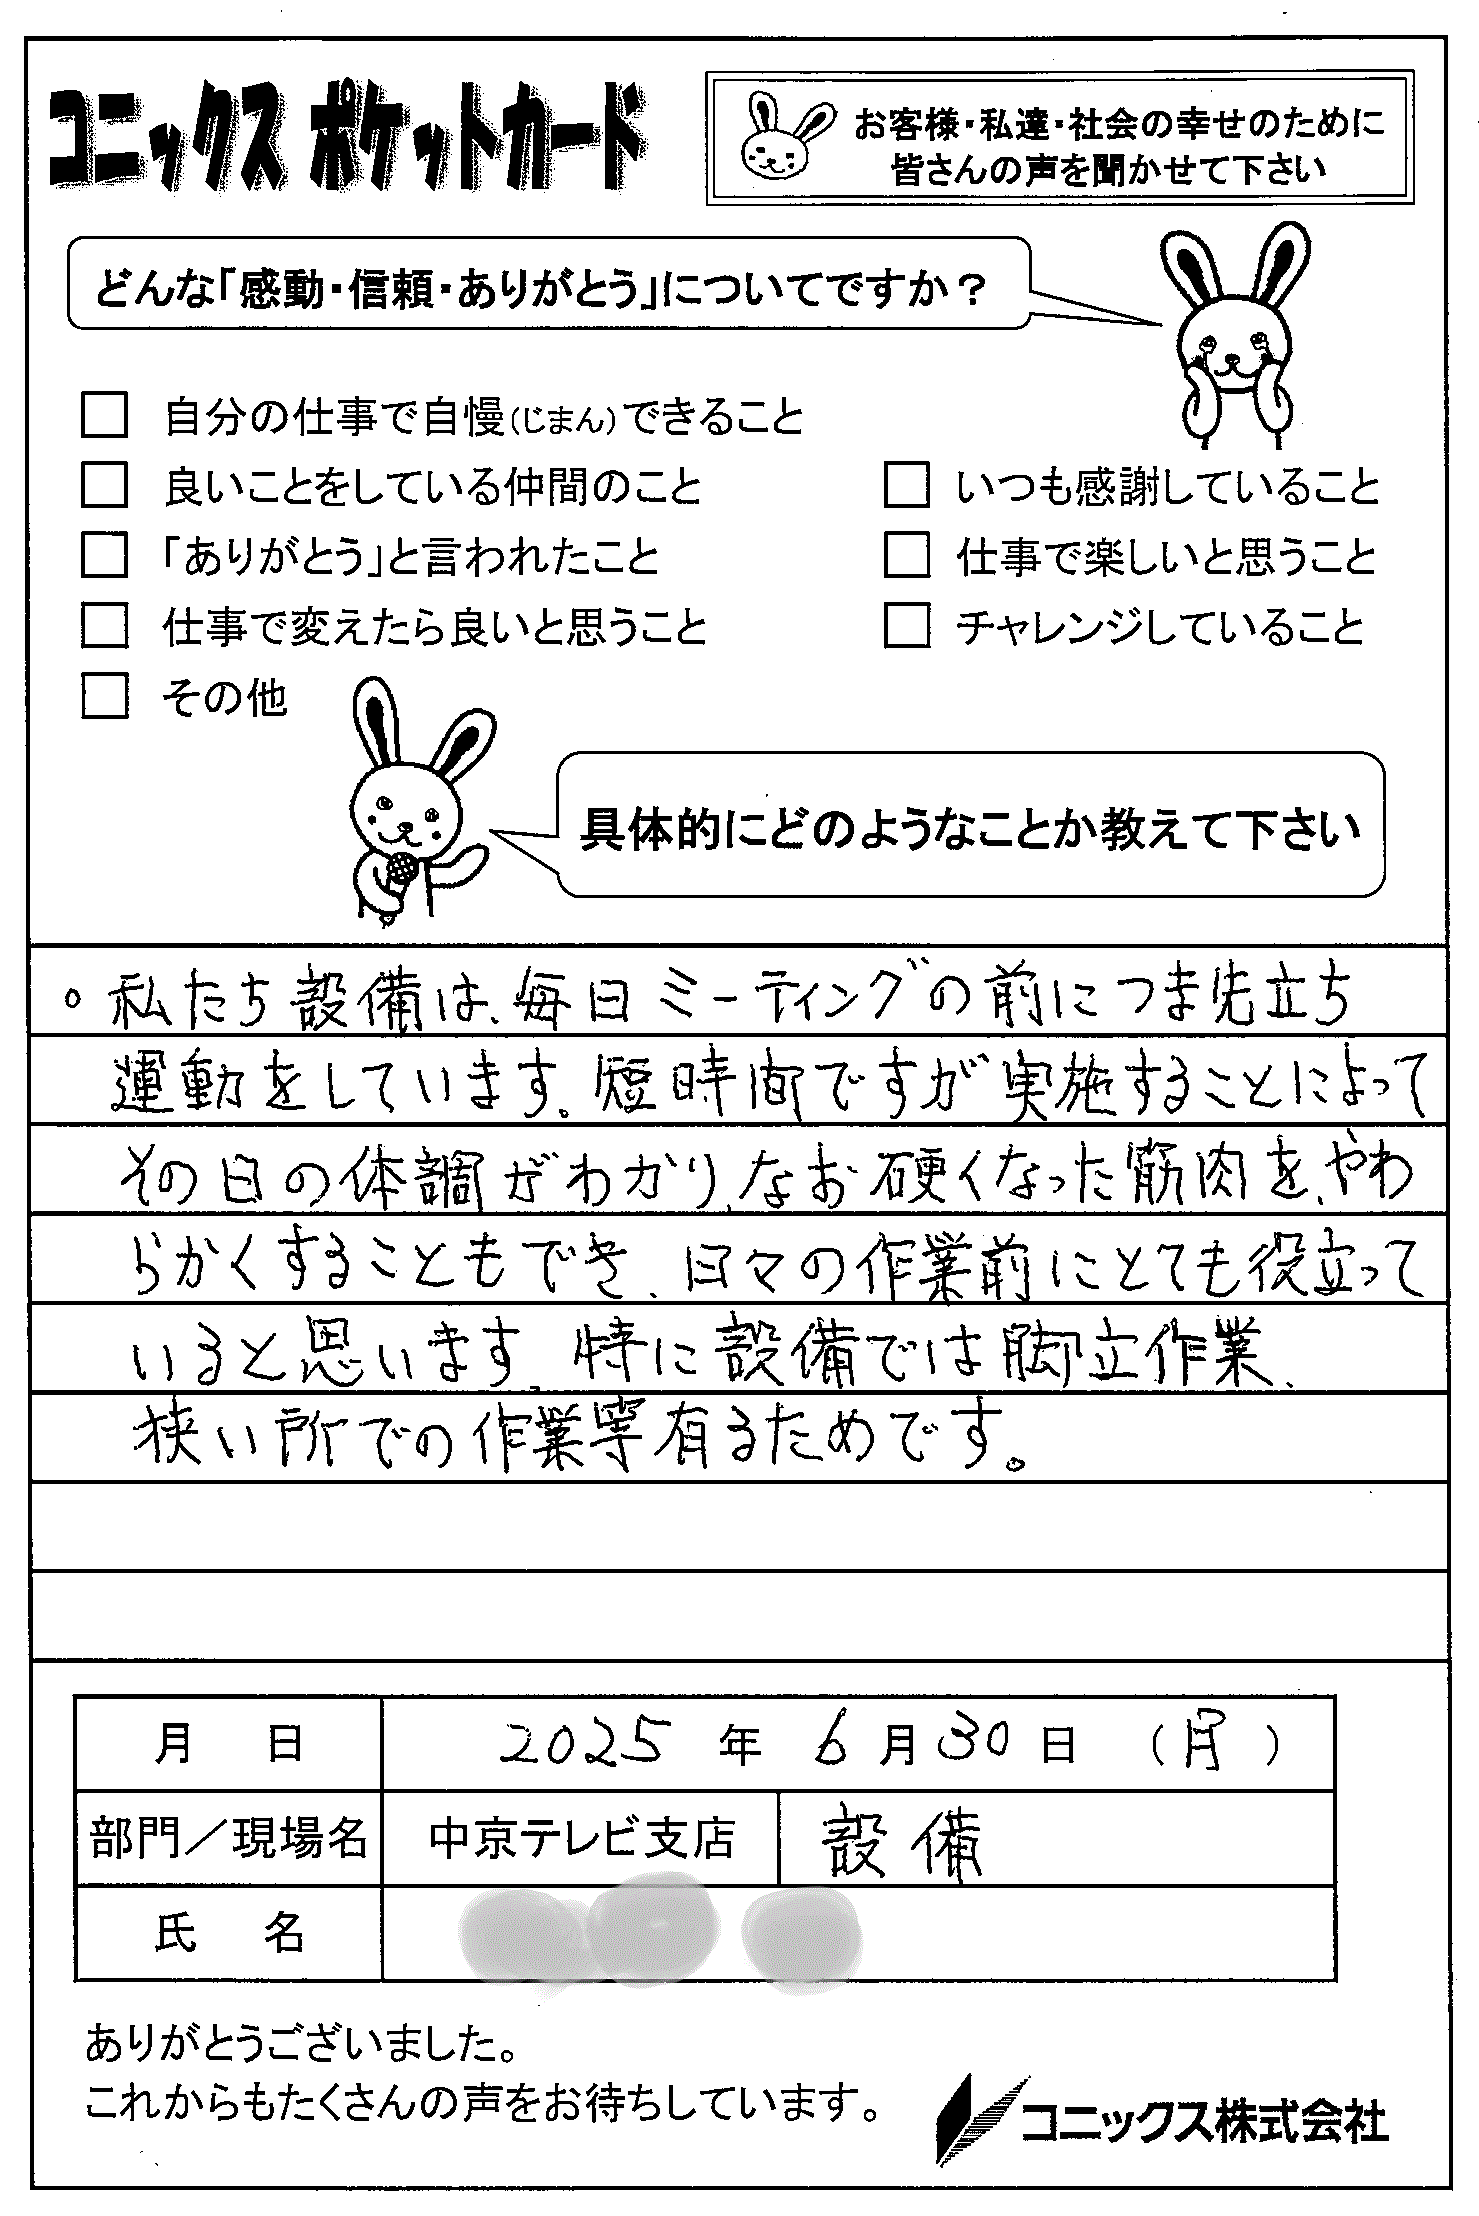 コニックス ポケットカード
お客様・私達・社会の幸せのために
皆さんの声を聞かせて下さい
どんな「感動・信頼・ありがとう」についてですか？
□ 自分の仕事で自慢(じまん)できること
□ 良いことをしている仲間のこと
□ いつも感謝していること
□ 「ありがとう」と言われたこと
□ 仕事で楽しいと思うこと
□ 仕事で変えたら良いと思うこと
□ チャレンジしていること
□ その他
具体的にどのようなことか教えて下さい
。私たち設備は、毎日ミーティングの前につま先立ち
運動をしています。短時間ですが実施することによって
その日の体調がわかり、なお硬くなった筋肉を、やわ
らかくすることもでき、日々の作業前にとても役立って
いると思います。特に設備では脚立作業、
狭い所での作業等有るためです。
月 日 2025 年 6 月 30 日 (月)
部門／現場名 中京テレビ支店 設備
氏 名
ありがとうございました。
これからもたくさんの声をお待ちしています。
コニックス株式会社